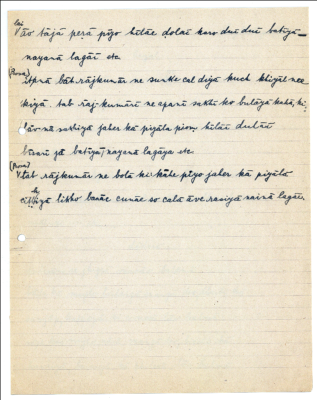 lei
Vāo tājā perā piyo hitāe dolāt karo dui dui batiyā
nayanā lagāī etc
(Prosa)
itanā bāt rājkumār ne sunke cal diyā kuch khiyāl nee
kiyā tab rājkumārī ne apanī sakhī ko bulāyā kahā, ki
lāo nā sakhiyā jaher kā piyālā piyo hitāi dulāt
bisarī gā batiyā/nayanā lagāya etc.
(Prosa)
Vtab rājkumār ne bolā ki kāhe piyo jaher kā piyālā
ciṭṭhiyā likho bance cunce so calā āve rasiyā nainā lagāī.